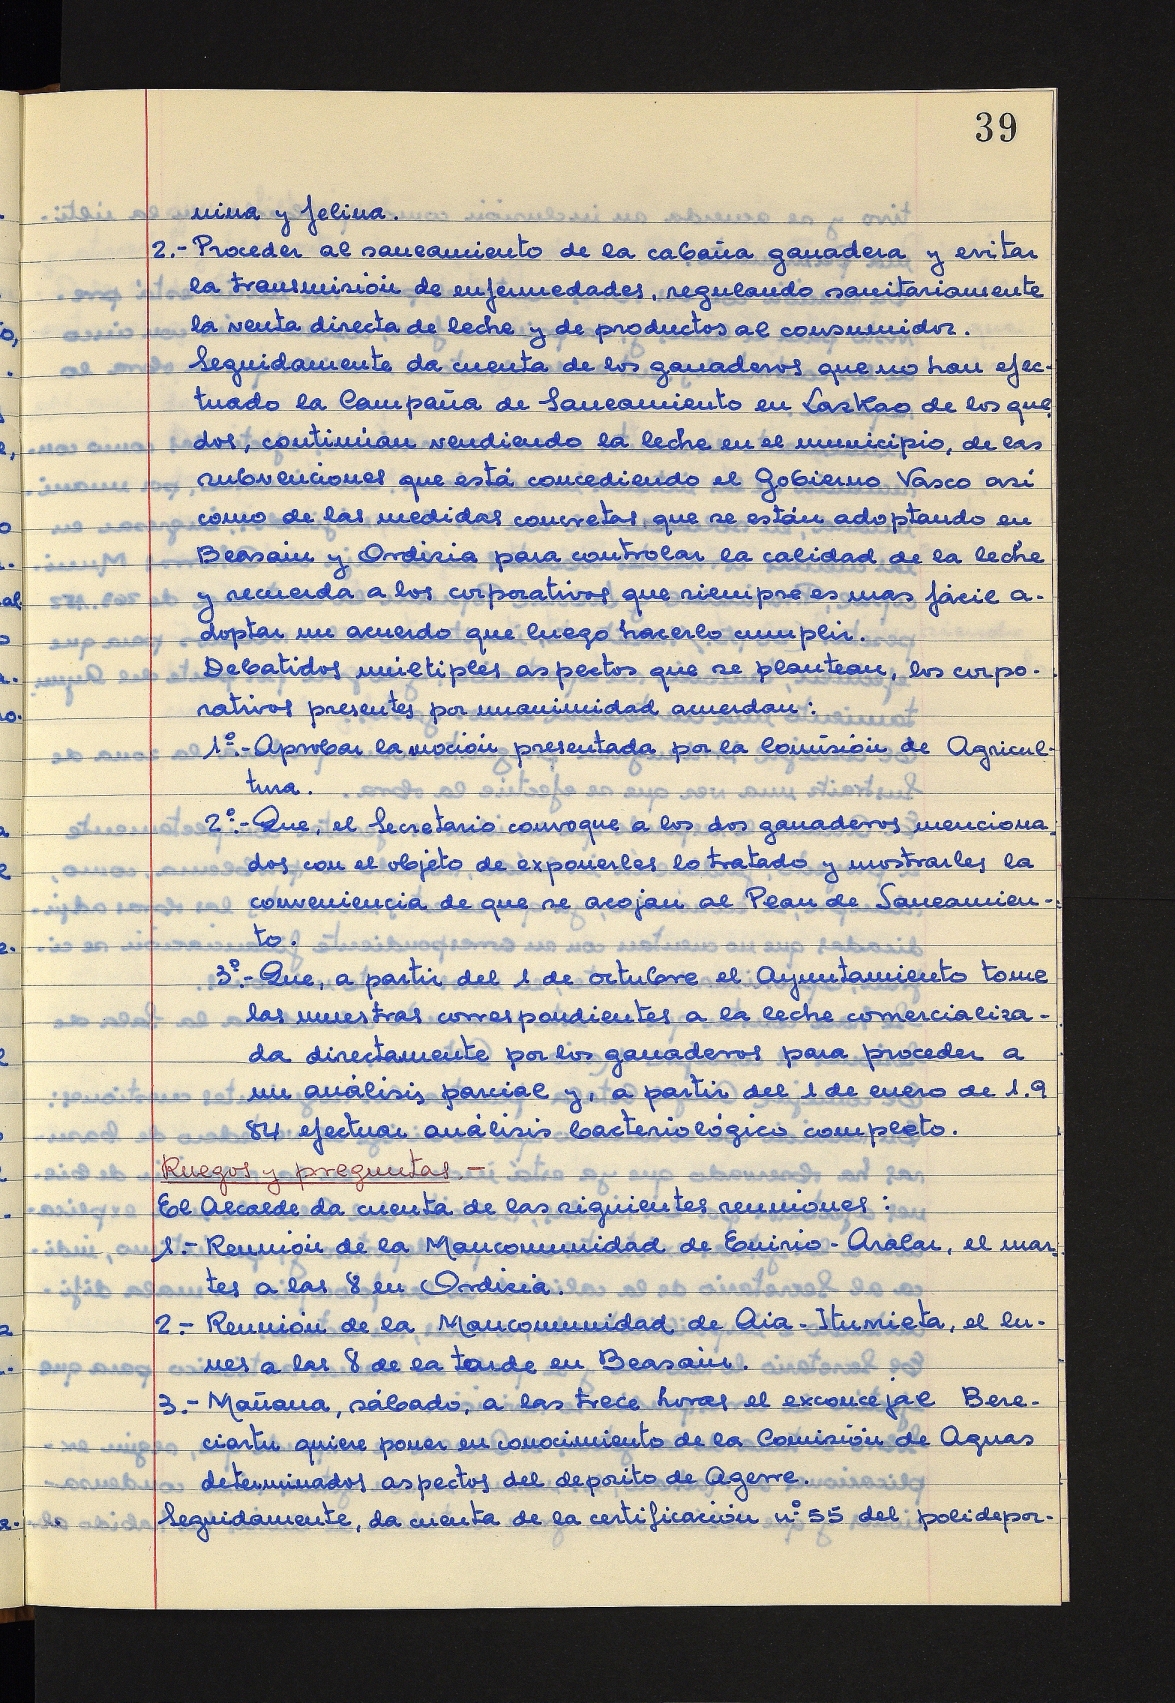 39
nina y felina.
2.- Proceder al saneamiento de la cabaña ganadera y evitar
la transmisión de enfermedades, regulando sanitariamente
la venta directa de leche y de productos al consumidor.
Seguidamente da cuenta de los ganaderos que no han efec-
tuado la Campaña de Saneamiento en Lazkao de los que,
dos, continúan vendiendo la leche en el municipio, de las
subvenciones que está concediendo el Gobierno Vasco así
como de las medidas concretas, que se están adoptando en
Beasain y Ordizia para controlar la calidad de la leche
y recuerda a los corporativos que siempre es mas fácil a-
doptar un acuerdo que luego hacerlo cumplir.
Debatidos múltiples aspectos que se plantean, los corpo-
rativos presentes por unanimidad acuerdan:
1º.- Aprobar la moción presentada por la Comisión de Agricul-
tura.
2º.- Que, el Secretario convoque a los dos ganaderos menciona-
dos con el objeto de exponerles lo tratado y mostrarles la
conveniencia de que se acojan al Plan de Saneamien-
to.
3º.- Que, a partir del 1 de octubre el Ayuntamiento tome
las muestras correspondientes a la leche comercializa-
da directamente por los ganaderos para proceder a
un análisis parcial y, a partir del 1 de enero de 1.9
84 efectuar análisis bacteriológico completo.
Ruegos y preguntas.-
El Alcalde da cuenta de las siguientes reuniones:
1.- Reunión de la Mancomunidad de Enirio-Aralar, el mar-
tes a las 8 en Ordizia.
2.- Reunión de la Mancomunidad de Aia-Iturrieta, el lu-
nes a las 8 de la tarde en Beasain.
3.- Mañana, sábado, a las trece horas el exconcejal Bere-
ciartu quiere poner en conocimiento de la Comisión de Aguas
determinados aspectos del deposito de Agerre.
Seguidamente, da cuenta de la certificación nº 55 del polidepor-